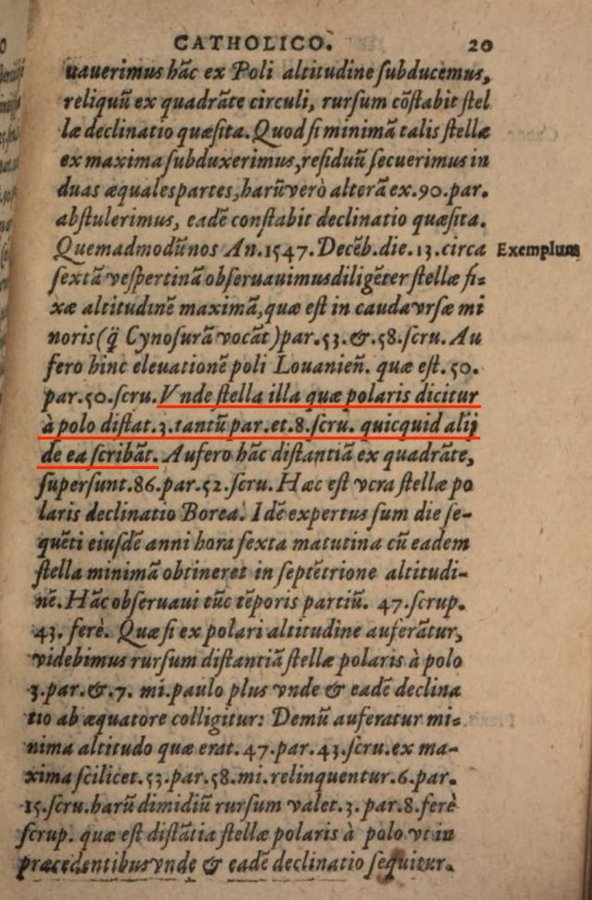 CATHOLICO. 20
uauerimus hāc ex Poli altitudine subducemus,
reliquū ex quadrāte circuli, rursum cōstabit stel
læ declinatio quæsita. Quod si minimā talis stellæ
ex maxima subduxerimus, residuū secuerimus in
duas æquales partes, harū verò alterā ex .90. par.
abstulerimus, eadē constabit declinatio quæsita.
Quemadmodū nos An. 1547. Decēb. die .13. circa Exemplum
sextā vespertinā obseruauimus diligēter stellæ fi=
xæ altitudinē maximā, quæ est in cauda vrsæ mi
noris (q̄ Cynosurā vocāt) par. 53. &. 58. scru. Au
fero hinc eleuationē poli Louanieñ. quæ est. 50.
par. 50. scru. Vnde stella illa quæ polaris dicitur
à polo distat. 3. tantū par. et. 8. scru. quicquid alij
de ea scribāt. Aufero hāc distantiā ex quadrāte,
supersunt. 86. par. 52. scru. Hæc est vera stellæ po
laris declinatio Borea. Idē expertus sum die se-
quēti eiusdē anni hora sexta matutina cū eadem
stella minimā obtineret in septētrione altitudi-
nē. Hāc obseruaui tūc tēporis partiū. 47. scrup.
43. ferè. Quæ si ex polari altitudine auferātur,
videbimus rursum distantiā stellæ polaris à polo
3. par. &. 7. mi. paulo plus vnde & eadē declina
tio ab æquatore colligitur: Demū auferatur mi=
nima altitudo quæ erat. 47. par. 43. scru. ex ma-
xima scilicet. 53. par. 58. mi. relinquentur. 6. par.
15. scru. harū dimidiū rursum valet. 3. par. 8. ferè
scrup. quæ est distātia stellæ polaris à polo vt in
præcedentibus vnde & eadē declinatio sequitur.